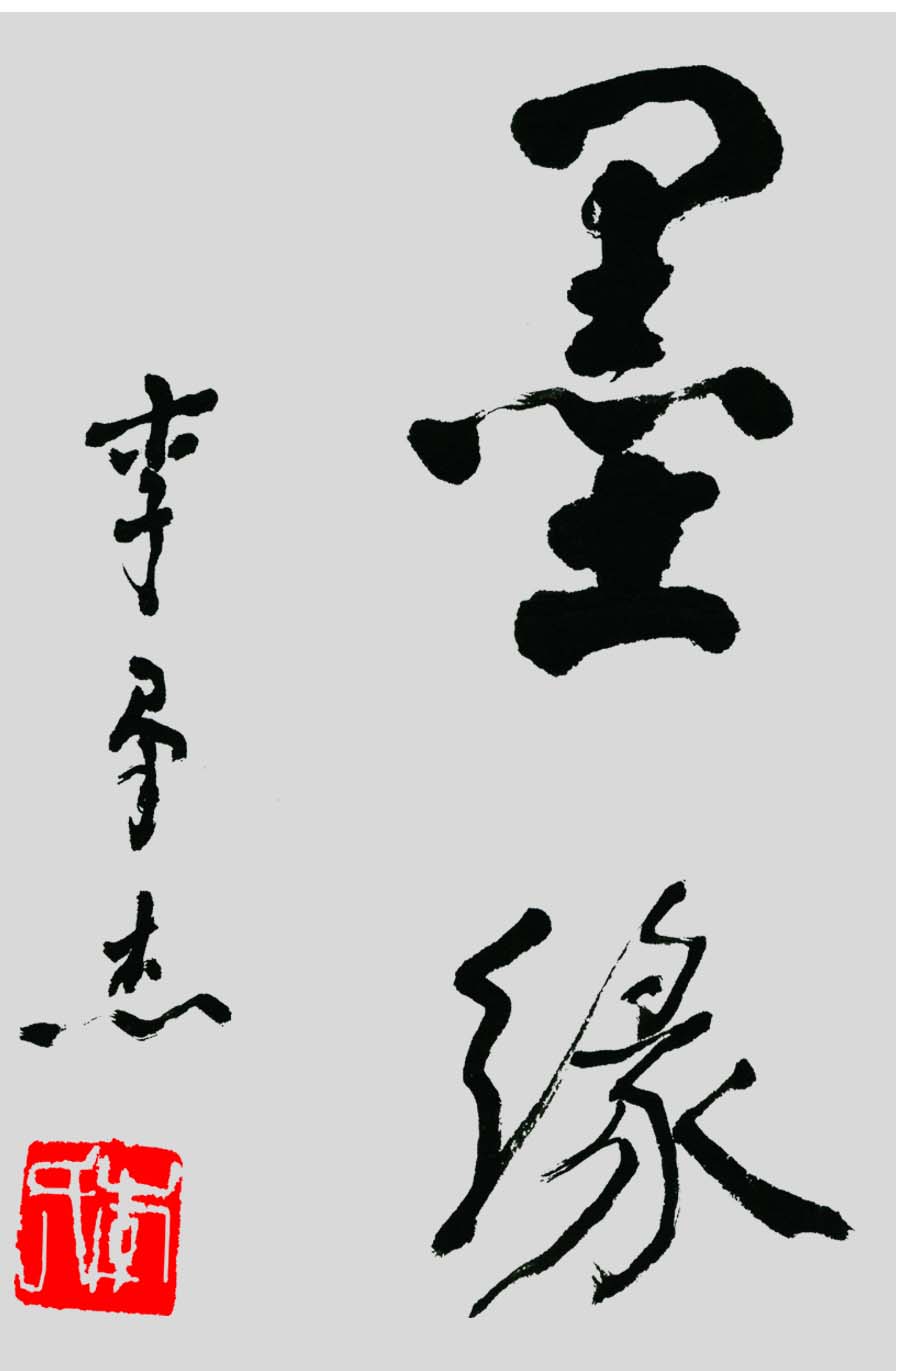 墨缘
李群杰